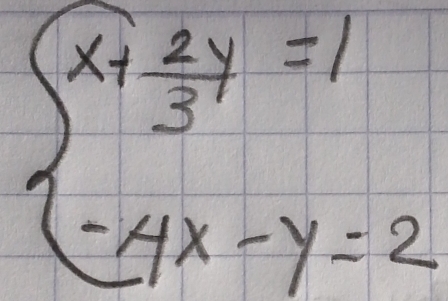 x + 2y/3 = 1
-4x - y = 2